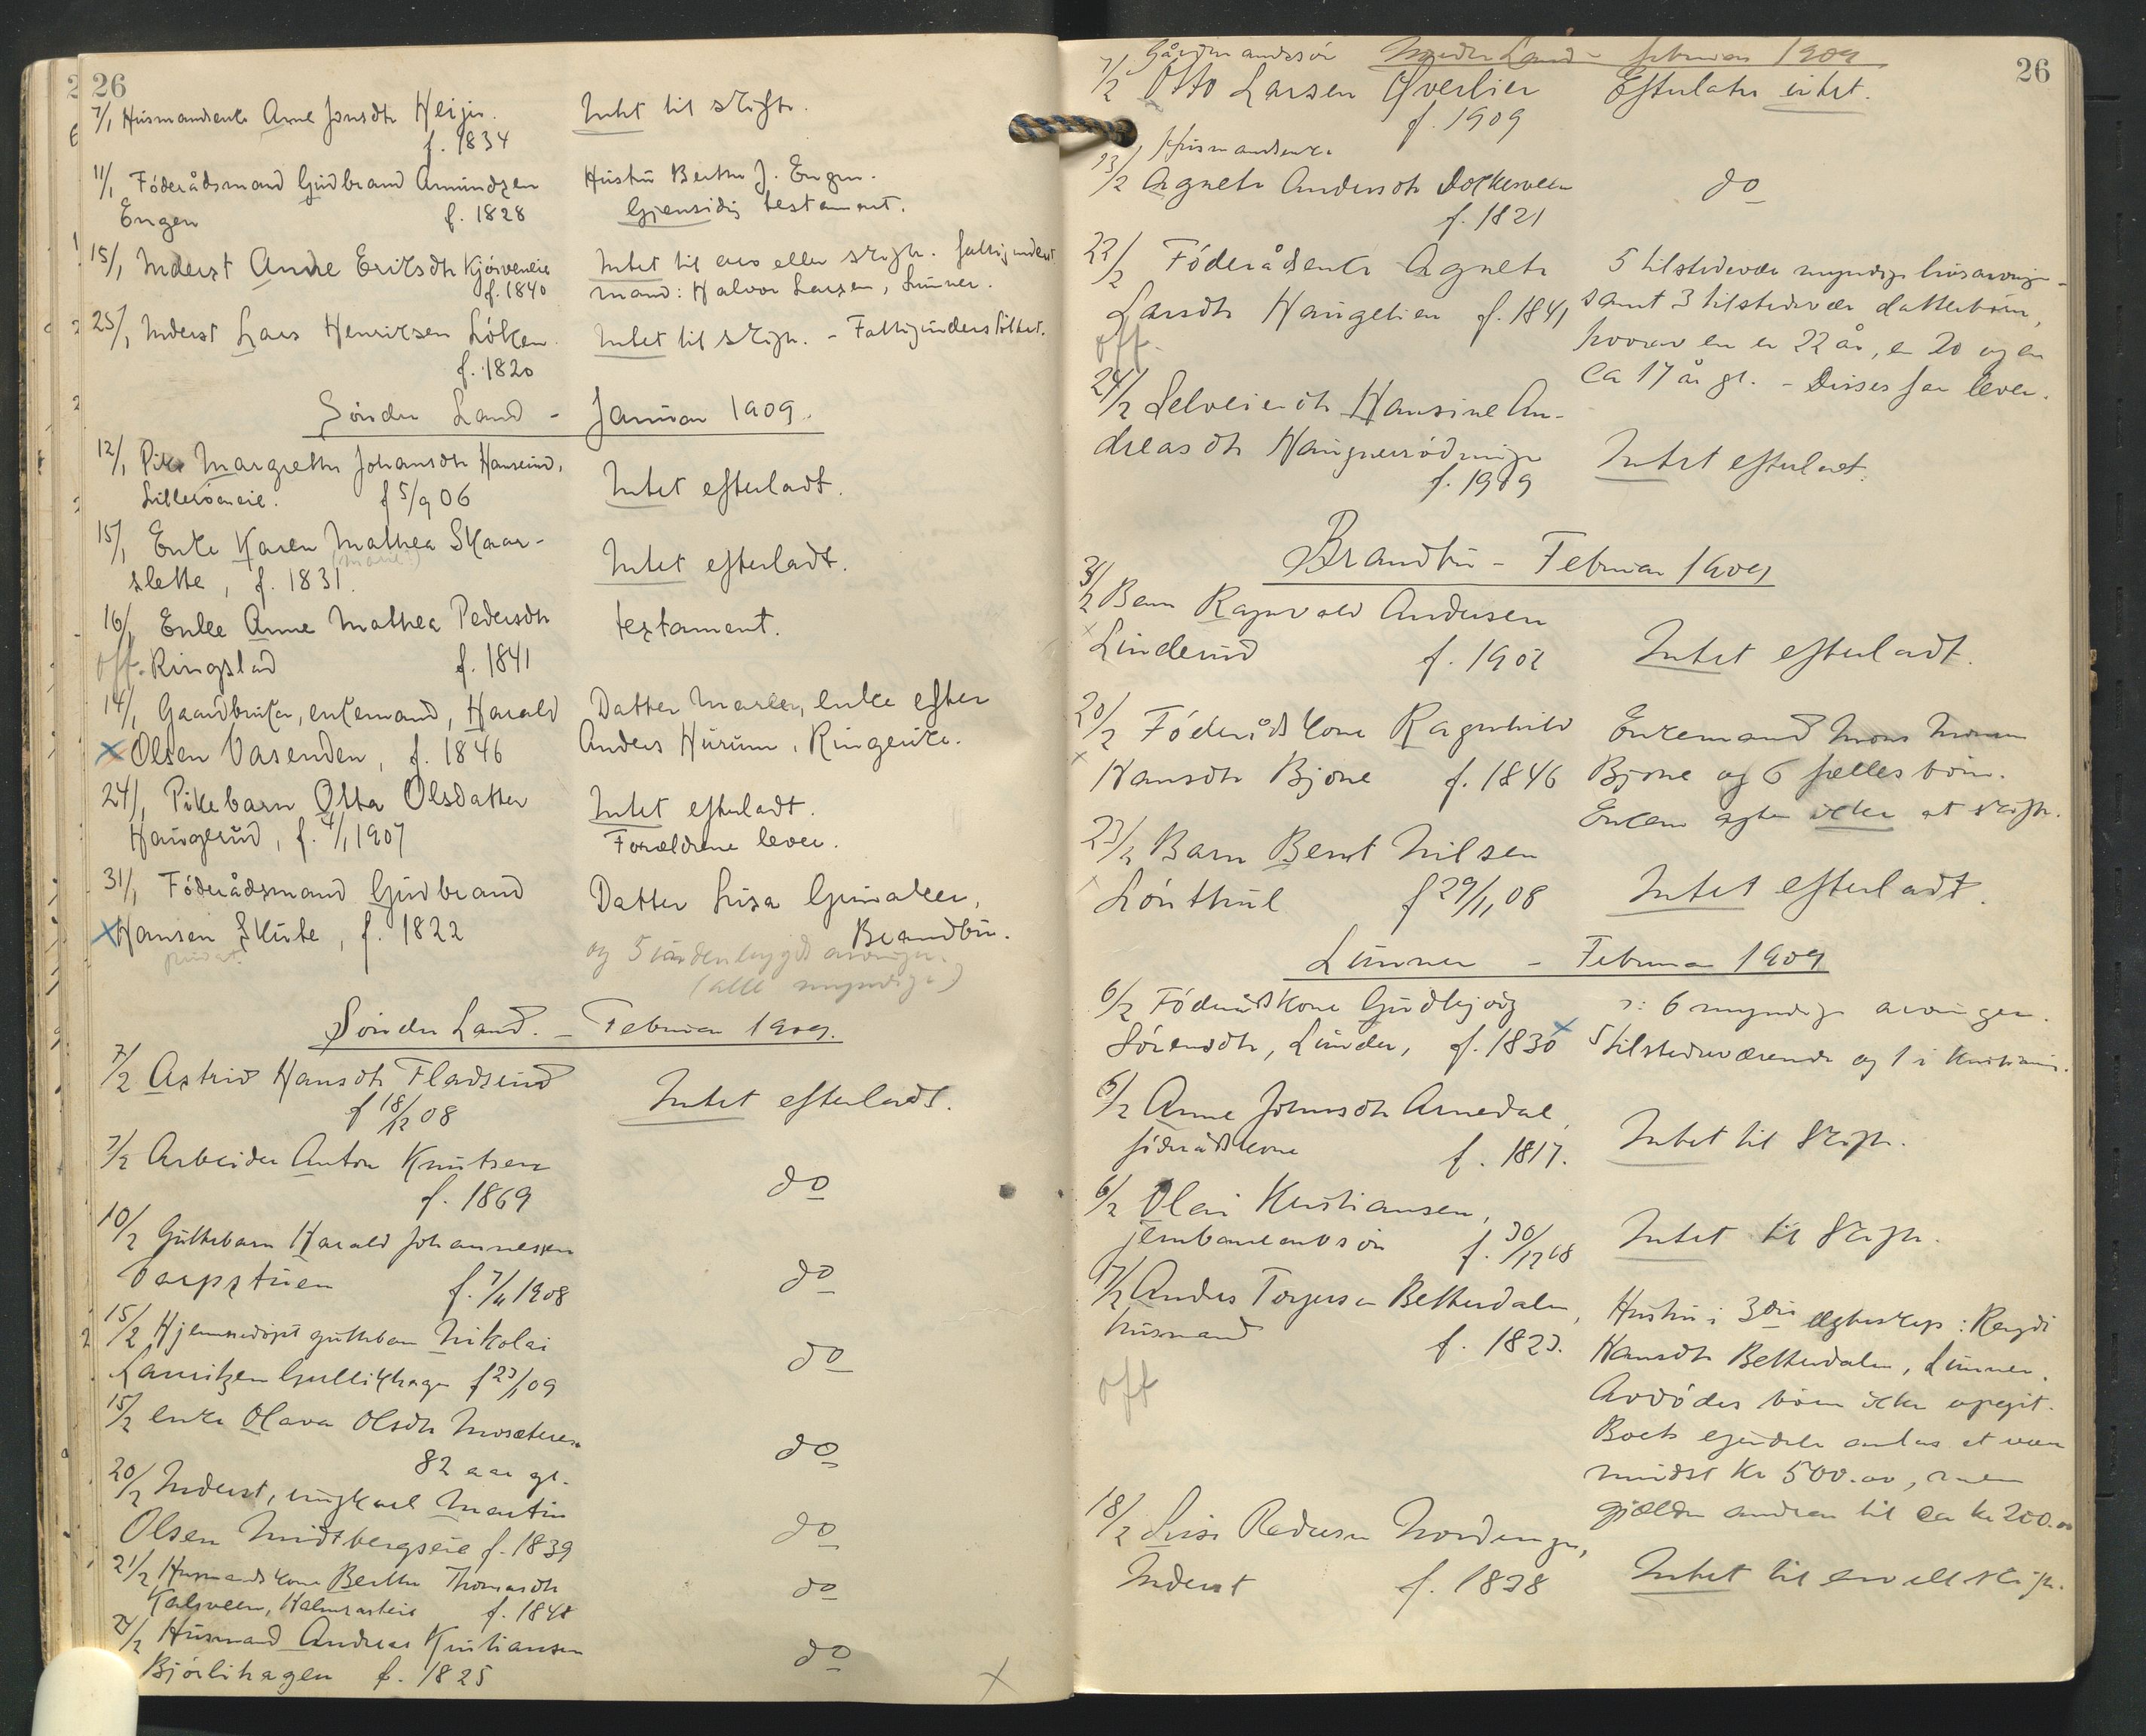 26
7/1 Husmandenke Arne Jonsdtr Heijer.
f. 1834
Intet til skifte.
11/1 Föderådsmand Gudbrand Amundzen
Engen f. 1828
Hustru Berthe J. Engen.
Gjensidig testament.
15/1 Inderst Anne Eriksdtr Kjösveneie
f. 1840
Intet til arv eller skifte. fattigunderst
mand: Halvor Larsen, Lunner.
25/1 Inderst Lars Henriksen Löken.
f. 1820
Intet til skifte. - Fattigunderstöttet.
Söndre Land - Januar 1909.
12/1 Pike Margrethe Johansdtr Hanserud,
Lilleröeneie. f 5/9 06
Intet efterladt.
15/1 Enke Karen Mathea Skaar-
(Marie?)
slette, f. 1831.
Intet efterladt.
16/1 Enke Anne Mathea Pedersdtr
off. Ringslad f. 1841
testament.
14/1 Gaardbruker, enkemand, Harald
x Olsen Vasenden, f. 1846
Datter Maren, enke efter
Anders Hurum, Ringerike.
24/1 Pikebarn Otta Olsdatter
Haugerud, f. 4/1 1907
Intet efterladt.
Forældrene lever.
31/1 Föderådsmand Gudbrand
x Hansen Skute, f. 1822
privat.
Datter Lisa Grinaker,
Brandbu.
og 5 indenbygds arvinger.
(alle myndige)
Söndre Land. - Februar 1909.
7/2 Astrid Hansdtr Fladserud
f 18/12 08
Intet efterladt.
7/2 Arbeider Anton Knutsen
f. 1869
do
10/2 Guttebarn Harald Johannessen
Varpstuen f. 7/11 1908
do
15/2 Hjemmedöpt guttebarn Nikolai
Lauritzen Gullikhagen f 23/1 09
do
15/2 enke Olava Olsdtr Mosæteren
82 aar gl.
do
20/2 Inderst, ungkarl Martin
Olsen Midtbergseie f. 1839
do
21/2 Husmandskone Berthe Thomasdtr
Kalsveen, f. 1848
do
24/2 Husmand Andreas Kristiansen
Björlihagen f. 1825
do
x
26
Gårdmandssön Nordre Land - februar 1909
7/2 Otto Larsen Överlier
f. 1909
Efterlater intet.
Husmandsenke
13/2 Agnete Andersdtr Dokkesveen
f. 1821
do
22/2 Föderådsenke Agnete
Larsdtr Haugelien f. 1841
off.
5 tilstedevær myndige livsarvinge
samt 3 tilstedevær datterbörn,
hvorav en er 22 år, en 20 og en
ca 17 år gl. - Disses far lever.
24/2 Selveierdtr Hansine An-
dreasdtr Haugnerödningen
f. 1909
Intet efterladt.
Brandbu - Februar 1909
3/2 Barn Ragnvald Andersen
x Linderud f. 1902
Intet efterladt.
20/2 Föderådskone Ragnhild
x Hansdtr Bjone f. 1846
Enkemand Mons Monsen
Bjone og 6 fælles börn.
Enkem agter ikke at skifte.
23/2 Barn Bernt Nilsen
Lönthul f 29/11 08
Intet efterladt.
Lunner - Februar 1909
6/2 Föderådskone Gudbjörg
Sörensdtr, Lunder, f. 1830 x
: 6 myndige arvinger.
5 tilstedeværende og 1 i Kristiania.
5/2 Anne Johnsdtr Arnedal,
föderådskone f. 1817.
Intet til skifte.
6/2 Olai Kristiansen,
jernbanearbsön f. 30/12 08
Intet til skifte.
17/2 Anders Torgersen Betterdalen,
husmand f. 1823.
off
Hustru i 3die ægteskap: Ragdi
Hansdtr Betterdalen, Lunner.
Avdödes börn ikke opgit.
Boets eiendele antas at være
mindst kr 500.00, men
gjælden andrar til ca kr 200.00
18/2 Lise Pedersen Nordengen,
Inderst f. 1838
Intet til arv ell skifte.